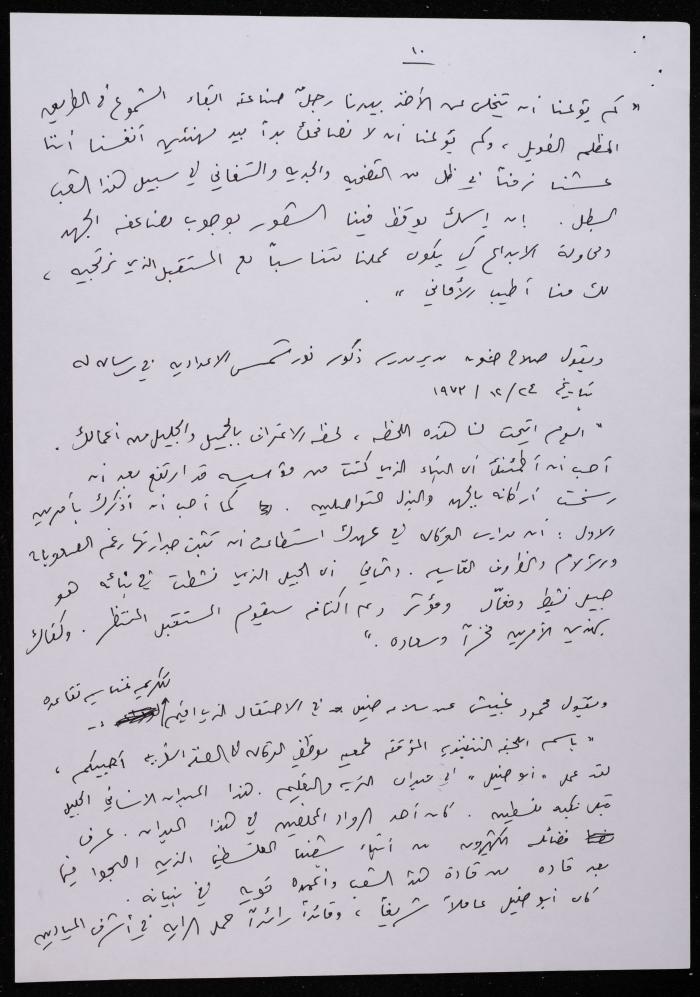 ١٠
" كم يؤلمنا ان يتخلى عن الأخذ بيدنا رجلٌ صناعته ابقاء الشموع في الطريق
المظلم الطويل ، وكم يؤلمنا ان لا نصافحك يداً بيد مهنئين أنفسنا أننا
عشنا زمناً في ظل من التضحيه والجديه والتفاني في سبيل هذا الشعب
البطل . إن إسمك يوقظ فينا الشعور بوجوب مضاعفة الجهد
ومحاولة الابداع كي يكون عملنا متناسباً مع المستقبل الذي نرتجيه ،
لك منا أطيب الأماني " .
ويقول صلاح مدير مدرسه ذكور نور شمس الاعداديه في رساله له
بتاريخ ٢٤ / ١٢ / ١٩٧٣
" اليوم اتيحت لنا هذه اللحظه ، لحظه الاعتراف بالجميل والجليل من أعمالك .
أحب ان أطمئنك أن البناء الذي كنت من مؤسسيه قد ارتفع بعد ان
رسخت أركانه بالجهد والبذل المتواصلين . كما أحب ان أذكرك بأمرين
الاول : ان مدارس الوكاله في عهدك استطاعت ان تثبت جدارتها رغم الصعوبات
والآلام والظروف القاسيه . والثاني أن الجيل الذي نشطت في بنائه هو
جيل نشيط وفعّال ومؤثر وعلى اكتافه سيقوم المستقبل المنتظر . وكفاك
بهذين الأمرين فخراً وسعاده . "
ويقول محمود غبيش عن سلامه خليل في الاحتفال الذي اقيم لتكريمه بمناسبه تقاعده :-
" باسم اللجنه التنفيذيه المؤقته لجمعيه موظفي الوكاله في الضفه الغربيه أحييكم ،
لقد عمل " أبو خليل " في ميدان التربيه والتعليم . هذا الميدان الانساني الجليل
قبل نكبه فلسطين . كان أحد الرواد المخلصين في هذا الميدان . عرف
فضائله الكثيرون من أبناء شعبنا الفلسطيني الذين اصبحوا فيما
بعد قاده من قادة هذا الشعب وأعمده قويه في بنيانه .
كان أبو خليل عاملاً شريفاً ، وقائداً رائداً حمل الرايه في أشرف الميادين